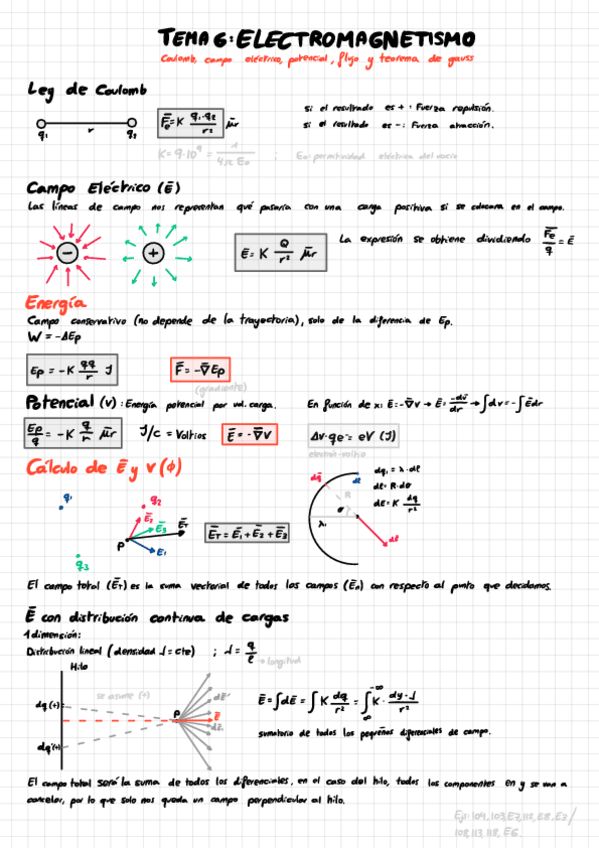 TEMA 6: ELECTROMAGNETISMO
Coulomb, campo eléctrico, potencial, flujo y teorema de gauss
Ley de Coulomb
q1 r q2
F̄e = K q1·q2 / r² μ̄r
si el resultado es + : Fuerza repulsión.
si el resultado es - : Fuerza atracción.
K = 9·10⁹ = 1 / 4π ε0 ; ε0: permitividad eléctrica del vacío
Campo Eléctrico (Ē)
Las líneas de campo nos representan qué pasaría con una carga positiva si se colocara en el campo.
- +
Ē = K Q / r² μ̄r
La expresión se obtiene dividiendo F̄e / q = Ē
Energía
Campo conservativo (no depende de la trayectoria), solo de la diferencia de Ep.
W = -ΔEp
Ep = -K qq / r J
F̄ = -∇̄Ep
(gradiente)
Potencial (V) : Energía potencial por ud. carga.
En función de x: Ē = -∇̄v → Ē = -dv̄ / dr → ∫dv = -∫Ēdr
Ep / q = -K q / r μ̄r
J/c = Voltios
Ē = -∇̄v
Δv·qe = eV (J)
electrón-voltio
Cálculo de Ē y v (ϕ)
q1 q2 q3
Ē2 Ē3 Ē1 ĒT
P
ĒT = Ē1 + Ē2 + Ē3
dq dl R θ λ dE
dq1 = λ·dl
dl = R·dθ
dE = K dq / r²
El campo total (ĒT) es la suma vectorial de todos los campos (Ēn) con respecto al punto que decidamos.
Ē con distribución continua de cargas
1 dimensión:
Distribución lineal (densidad λ = cte) ; λ = q / l → longitud
Hilo
se asume (+)
dq (+)
P
dĒ'
Ē
dĒ
dq'(+)
Ē = ∫dĒ = ∫ K dq / r² = ∫ K · dy·λ / r²
sumatorio de todos los pequeños diferenciales de campo.
El campo total será la suma de todos los diferenciales, en el caso del hilo, todos los componentes en y se van a
cancelar, por lo que solo nos queda un campo perpendicular al hilo.